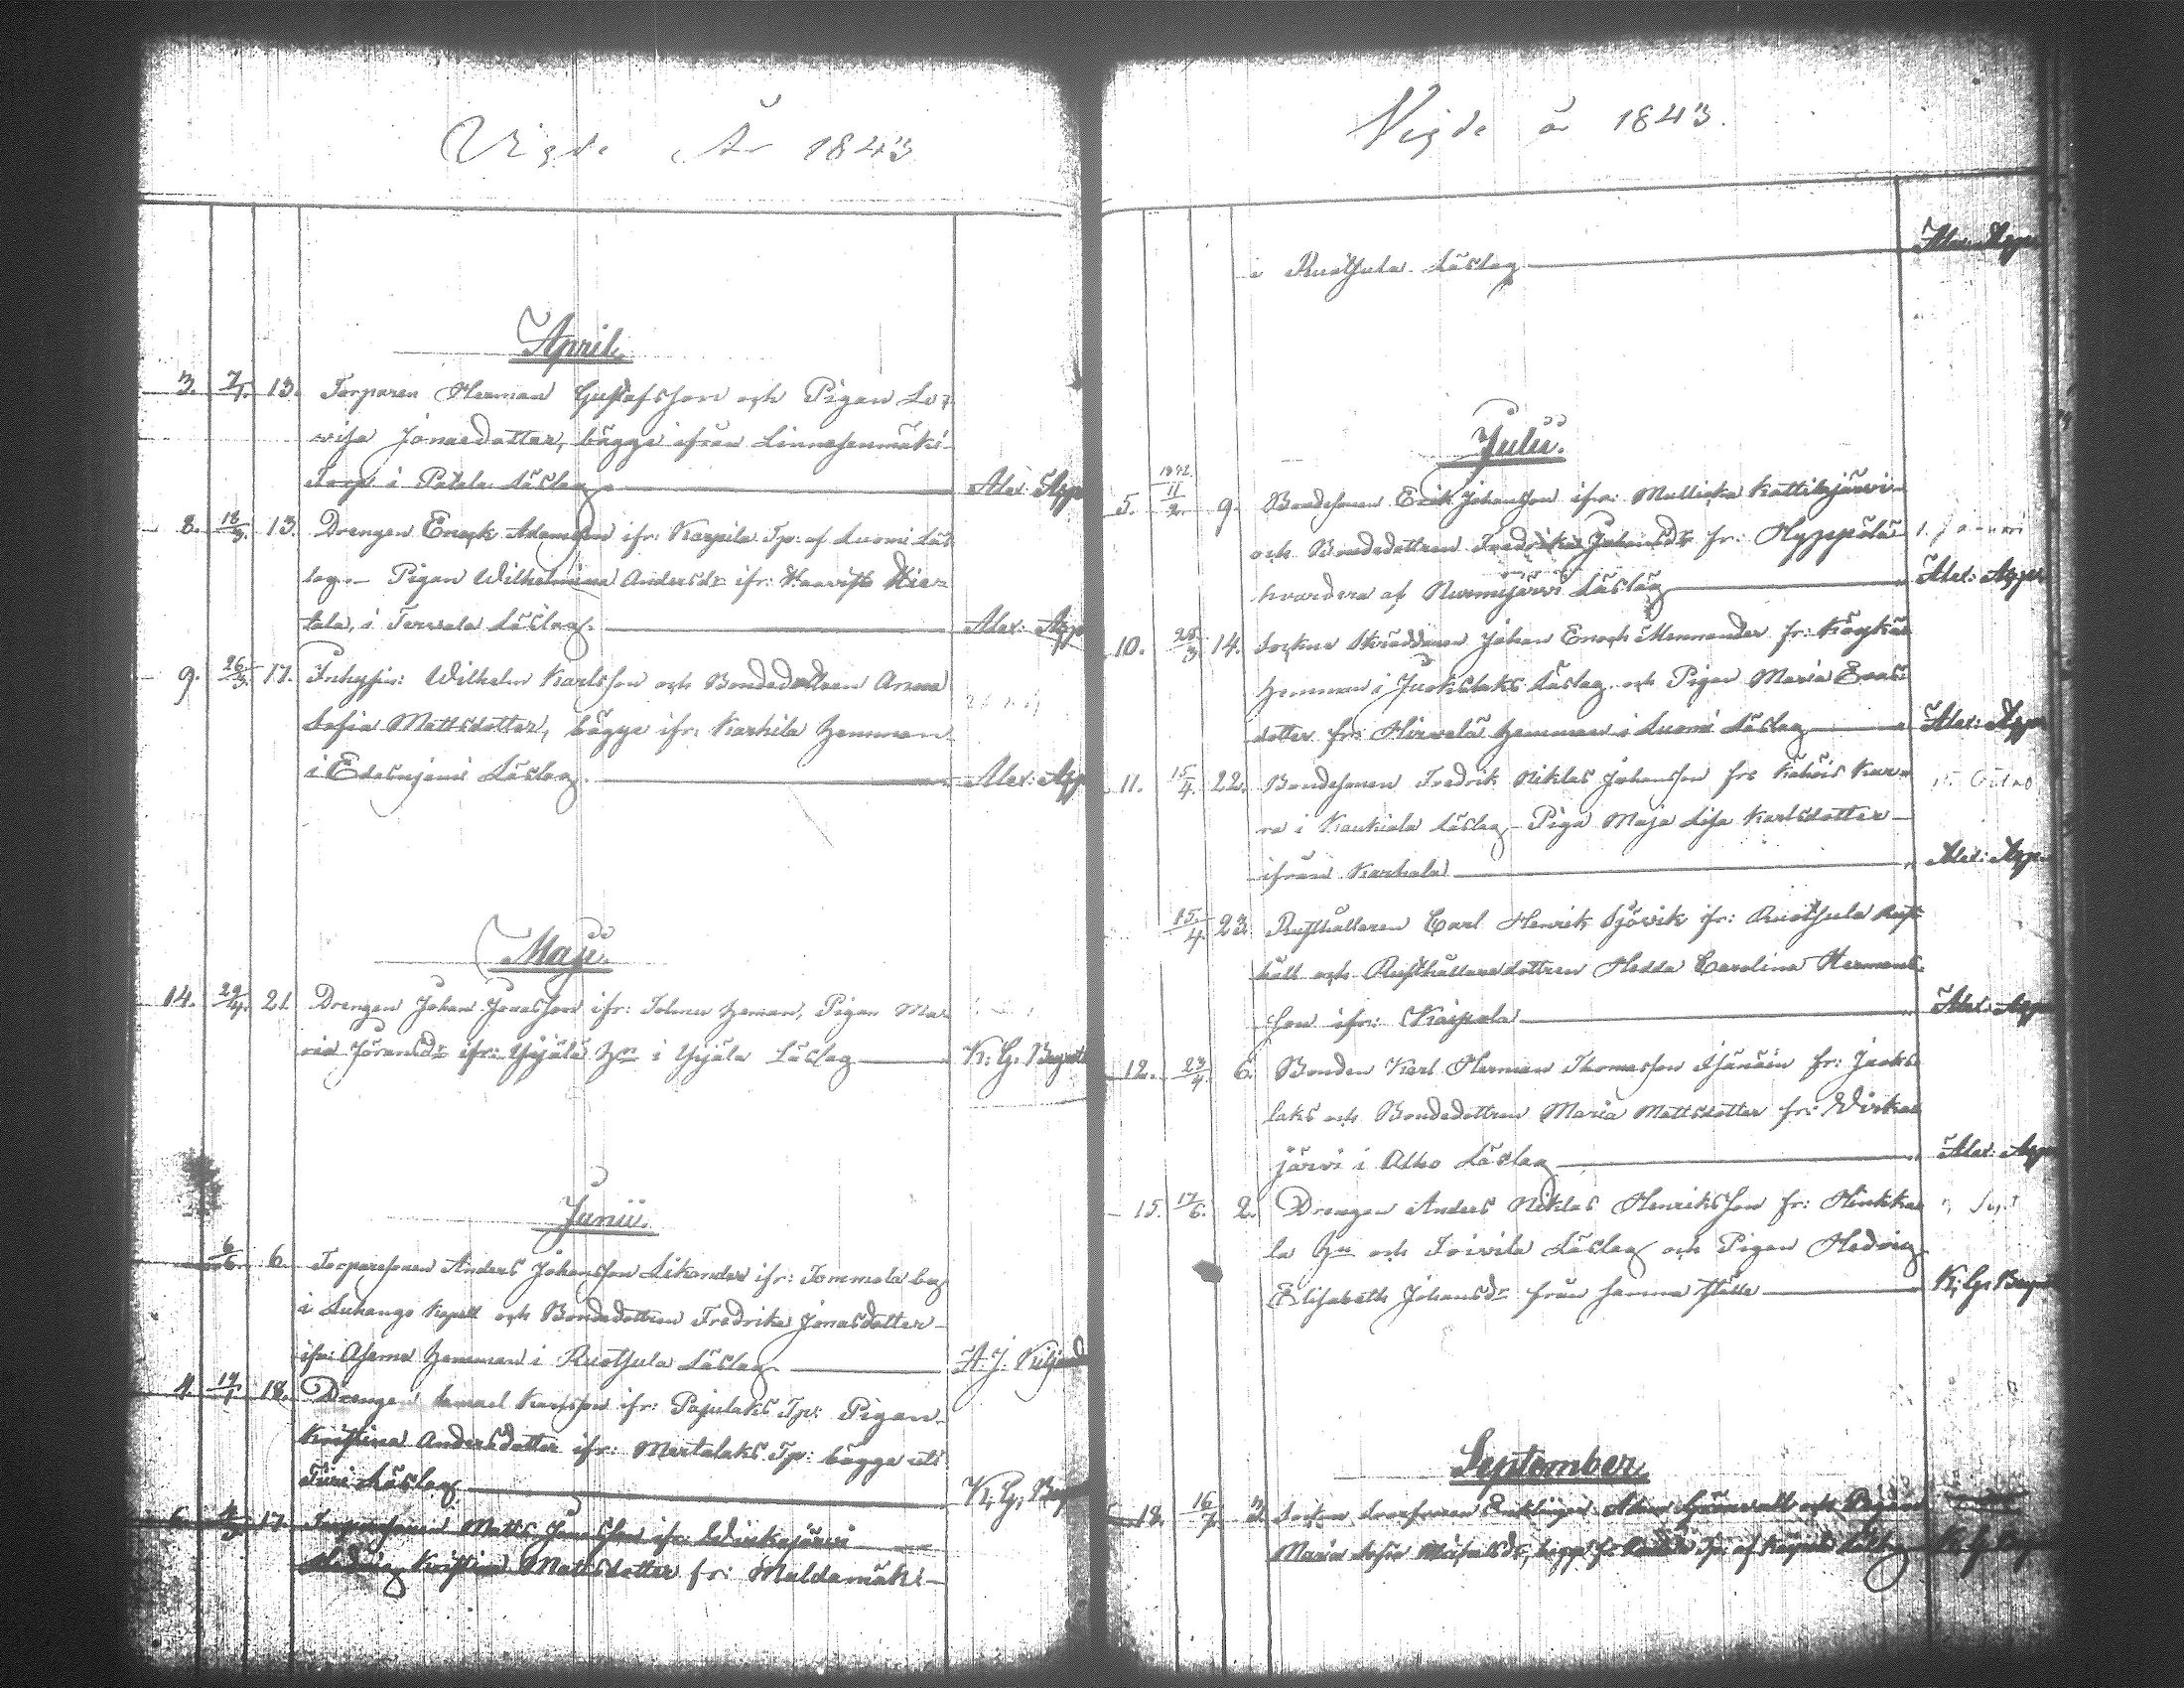 Vigde År 1843
April.
3. 7/1. 13. Torparen Herman Gustafsson och Pigan Lo-
visa Jonaedotter, bägge ifrån Linnasenmäki
Torp i Patala Läslag Alex: App
8. 18/3. 13. Drengen Enock Adamsson ifr: Karpila Tp: af Luomi Läs
lag. – Pigan Wilhelmina Andersdr ifr: Hie-
tala, i Tervala Läslag. Alex: App
9. 26/3. 17. Inhysn: Wilhelm Karlsson och Bondedottren Anna
Sofia Mattsdotter, bägge ifr. Karkila Hemman
i Edesniemi Läslag. Alex: App
Maji.
14. 29/4. 21. Drengen Johan Jonasson ifr: Hemman, Pigan Ma-
ria Jöransdr ifr: Yijälä Hn i Yijälä Läslag K: G:
Junii.
6/6. 6. Torparesonen Anders Johansson Likander ifr: Tommola by
i Luhango Kapell och Bondedottren Fredrika Jonasdotter
ifr: Hemman i Ruothula Läslag A. J.
4. 14/1. 18. Drengen Samuel Karlsson ifr: Pajulaks Tp: Pigan
Kristina Andersdotter ifr: Mertalaks Tp: bägge uti
Läslag K. G.
6. 17. Torparesonen Matts Jonasson ifr: Wirkajärvi
Hedvig Kristina Mattsdotter fr: Muldamäki
Vigde år 1843.
i Ruothula Läslag Alex: App
Julii.
5. 1842 11/2. 9. Bondesonen Erik Johansson ifr: Mullicka Kattilajärvi
och Bondedottren Fredrika Johansdr fr: Hyyppölä
hvardera af Nurmijärvi Läslag Alex: App
10. 25/3 14. Sockne Skräddaren Johan Enoch Mennander fr:
Hemman i Juokslaks Läslag och Pigan Maria Enas-
dotter fr: Hirvelä Hemman i Luomi Läslag Alex: App
11. 15/4. 22. Bondesonen Fredrik Niklas Johansson fr: Kähöis Kar-
ra i Kaukiala Läslag – Piga Maja Lisa Karlsdotter
ifrån Karhala Alex: App
15/4. 23. Rusthållaren Carl Henrik Sjövik ifr: Ruothula Rust-
håll och Rusthållaredottren Hedda Carolina Hermans-
son ifr: Kaipala Alex: App
12. 23/4. 6. Bonden Karl Herman Thomasson fr: Juoks-
laks och Bondedottren Maria Mattsdotter fr: Wirka-
järvi i Alho Läslag Alex: App
15. 17/6. 2. Drengen Anders Niklas Henriksson fr: Hinkka-
la Hn och Toivila Läslag och Pigan Hedvig
Elisabeth Johansdr från samma ställe K. G.
September.
18. 16/7. 3. Socken och Pigan
Maria Sofia bägge fr: Tp: af Läslag K. G.